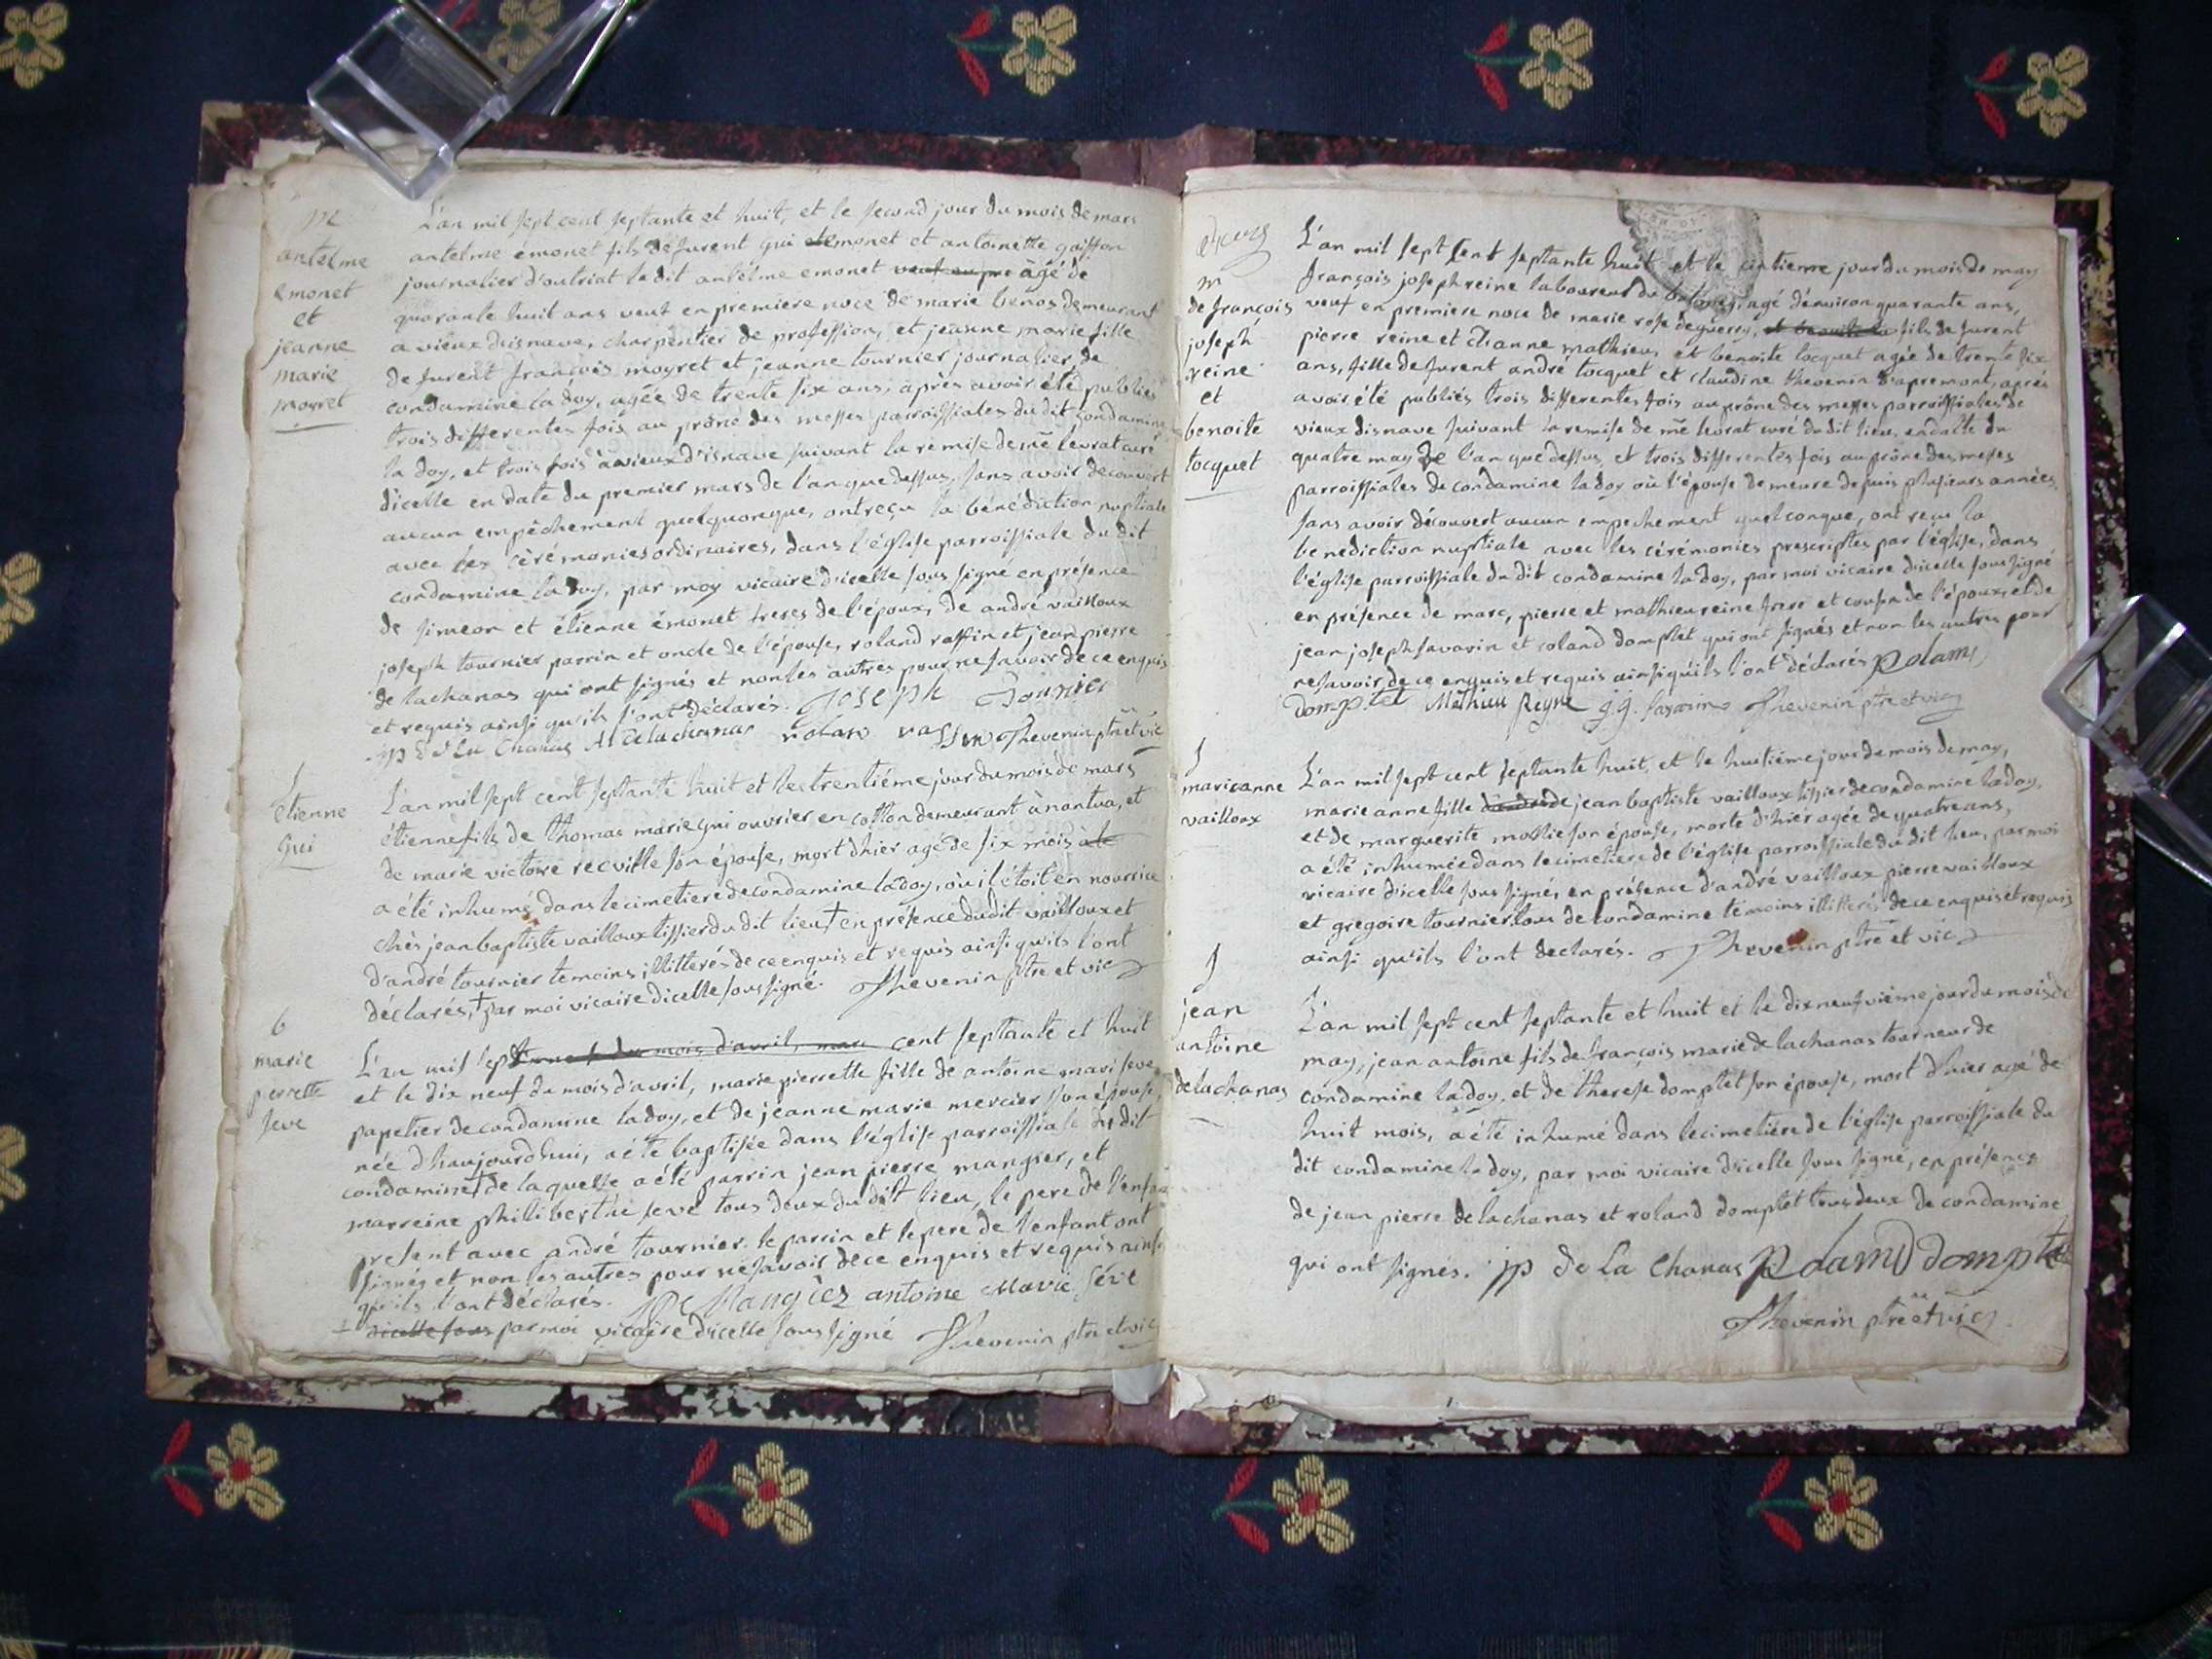 m
antelme
emonet
et
jeanne
marie
moyret
L'an mil sept cent septante et huit, et le second jour du mois de mars
antelme émonet fils de furent gui emonet et antoinette goiffon
journalier d'outriat le dit antelme emonet veuf en pre âgé de
quarante huit ans veuf en premiere noce de marie benos demeurant
a vieux disnave, charpentier de profession, et jeanne marie fille
de furent françois moyret et jeanne tournier journalier de
condamine la doy, agée de trente six ans, après avoir été publiés
trois differentes fois au prône des messes parroissiales du dit condamine
la doy, et trois fois à vieux d'isnave suivant la remise de mre levrat curé
dicelle en date du premier mars de l'an que dessus, sans avoir decouvert
aucun empêchement quelquonque, ont reçu la bénédiction nuptiale
avec les cérémonies ordinaires, dans l'église parroissiale du dit
condamine la doy, par moy vicaire dicelle sous signé en présence
de simeon et étienne émonet freres de l'époux, de andré vailloux
joseph tournier parrin et oncle de l'épouse, roland raffin et jean pierre
de lachanas qui ont signés et non les autres pour ne savoir de ce enquis
et requis ainsi qu'ils l'ont déclarés. JOSEPH Tournier
jp De La Chanas delachanas rolan raffin Thevenin ptre et vic
S
étienne
gui
L'an mil sept cent septante huit et le trentiéme jour du mois de mars
étienne fils de thomas marie gui ouvrier en cotton demeurant à nantua, et
de marie victoire recville son épouse, mort d'hier agé de six mois
a été inhumé dans le cimetiere de condamine la doy, où il étoit en nourrice
chès jean baptiste vailloux tissier du dit lieu + en présence du dit vailloux et
d'andré tournier temoins illitterés de ce enquis et requis ainsi qu'ils l'ont
déclarés, + par moi vicaire dicelle sous signé. Thevenin ptre et vic
b
marie
perrette
seve
L'an mil sept du mois d'avril, cent septante et huit
et le dix neuf du mois d'avril, marie pierrette fille de antoine mari seve
papetier de condamine la doy, et de jeanne marie mercier son épouse,
née d'haujourdhui, a été baptisée dans l'église parroissiale du dit
condamine + de laquelle a été parrin jean pierre mangier, et
marreine philiberthe seve tous deux du dit lieu, le pere de l'enfant
present avec andré tournier. le parrin et le pere de l'enfant ont
signés et non les autres pour ne savoir de ce enquis et requis ainsi
qu'ils l'ont déclarés. Mangiez antoine Marie séve
+ dicelle sous par moi vicaire dicelle sous signé Thevenin ptre et vic
m
de françois
joseph
reine
et
benoite
tocquet
L'an mil sept cent septante huit et le cintieme jour du mois de may
françois joseph reine laboureur du agé d'environ quarante ans,
veuf en premiere noce de marie rose deguerry, fils de furent
pierre reine et Jeanne mathieu, et benoite tocquet agée de trente six
ans, fille de furent andré tocquet et claudine thevenin d'apremont, aprés
avoir été publiés trois differentes fois au prône des messes parroissiales de
vieux disnave suivant la remise de mre curé du dit lieu, en datte du
quatre may de l'an que dessus, et trois differentes fois au prône des messes
parroissiales de condamine la doy où l'épouse demeure depuis plusieurs années,
sans avoir découvert aucun empechement quelconque, ont reçu la
benediction nuptiale avec les cérémonies prescriptes par l'église, dans
l'église parroissiale du dit condamine la doy, par moi vicaire dicelle sous signé
en présence de marc, pierre et mathieu reine frere et cousin de l'époux, et de
jean joseph savarin et roland domptet qui ont signés et non les autres pour
ne savoir de ce enquis et requis ainsi qu'ils l'ont déclarés Rolam
domptet Mathieu Reyne j.j. savarin Thevenin ptre et vic
S
marie anne
vailloux
L'an mil sept cent septante huit, et le huitiéme jour du mois de may,
marie anne fille de jean baptiste vailloux tissier de condamine la doy,
et de marguerite mollie son épouse, morte d'hier agée de quatre ans,
a été inhumée dans le cimetiere de l'église parroissiale du dit lieu, par moi
vicaire dicelle sous signé, en présence d'andré vailloux pierre vailloux
et gregoire tournier tous de condamine témoins illitterés de ce enquis et requis
ainsi qu'ils l'ont declarés. Thevenin ptre et vic
S
jean
antoine
delachanas
L'an mil sept cent septante et huit et le dix neufviéme jour du mois de
may, jean antoine fils de françois marie de lachanas tourneur de
condamine la doy, et de therese domptet son épouse, mort d'hier agé de
huit mois, a été inhumé dans le cimetiére de l'église parroissiale du
dit condamine la doy, par moi vicaire dicelle sous signé, en présence
de jean pierre de lachanas et roland domptet tous deux de condamine
qui ont signés. jp de La Chanas Rolam domptet
Thevenin ptre et vic